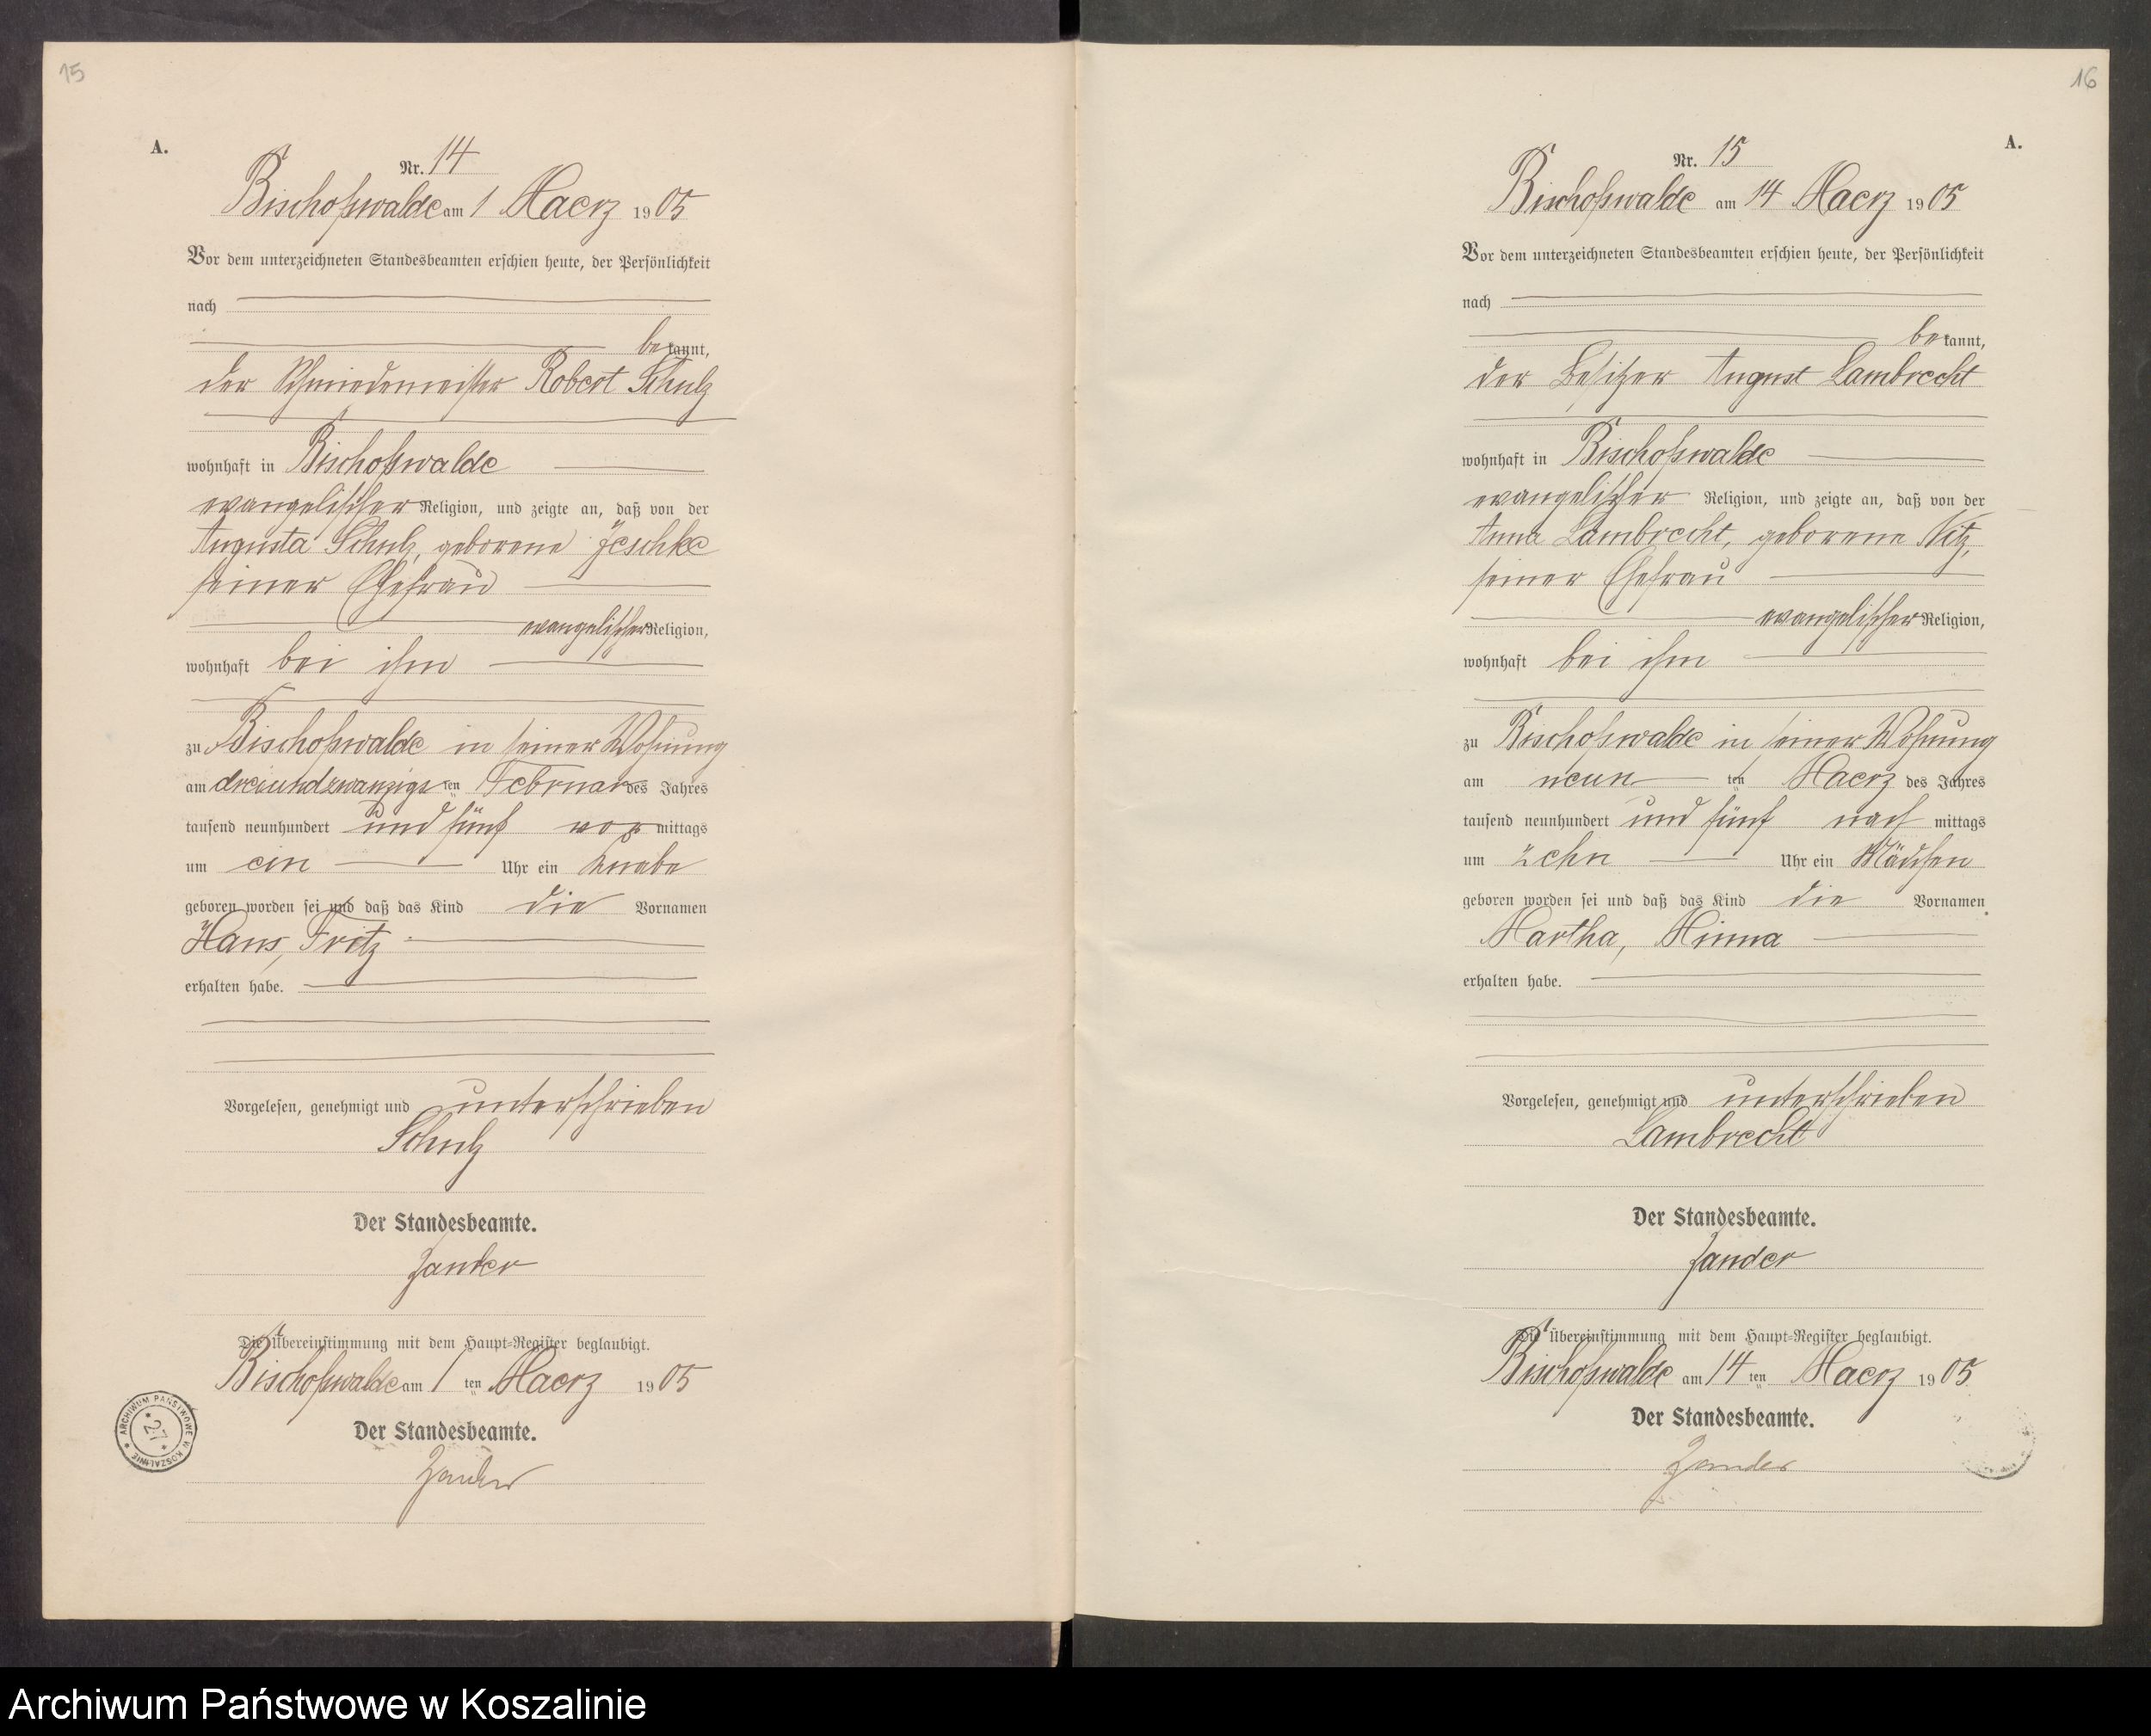 15
A.
Nr. 14
Bischofswalde am 1 Maerz 1905
Vor dem unterzeichneten Standesbeamten erschien heute, der Persönlichkeit
nach
bekannt,
der Schmiedemeister Robert Schulz
wohnhaft in Bischofswalde
evangelischer Religion, und zeigte an, daß von der
Augusta Schulz, geborene Jeschke
seiner Ehefrau
evangelischer Religion,
wohnhaft bei ihm
zu Bischofswalde in seiner Wohnung
am dreiundzwanzigsten Februar des Jahres
tausend neunhundert und fünf vormittags
um ein Uhr ein Knabe
geboren worden sei und daß das Kind die Vornamen
Hans, Fritz
erhalten habe.
Vorgelesen, genehmigt und unterschrieben
Schulz
Der Standesbeamte.
Zander
Die Übereinstimmung mit dem Haupt-Register beglaubigt.
Bischofswalde am 1 ten Maerz 1905
Der Standesbeamte.
Zander
ARCHIWUM PAŃSTWOWE W KOSZALINIE
* 27 *
16
A.
Nr. 15
Bischofswalde am 14 Maerz 1905
Vor dem unterzeichneten Standesbeamten erschien heute, der Persönlichkeit
nach
bekannt,
der Besitzer August Lambrecht
wohnhaft in Bischofswalde
evangelischer Religion, und zeigte an, daß von der
Anna Lambrecht, geborene Nitz,
seiner Ehefrau
evangelischer Religion,
wohnhaft bei ihm
zu Bischofswalde in seiner Wohnung
am neun ten Maerz des Jahres
tausend neunhundert und fünf nach mittags
um zehn Uhr ein Mädchen
geboren worden sei und daß das Kind die Vornamen
Martha, Minna
erhalten habe.
Vorgelesen, genehmigt und unterschrieben
Lambrecht
Der Standesbeamte.
Zander
Die Übereinstimmung mit dem Haupt-Register beglaubigt.
Bischofswalde am 14 ten Maerz 1905
Der Standesbeamte.
Zander
Archiwum Państwowe w Koszalinie